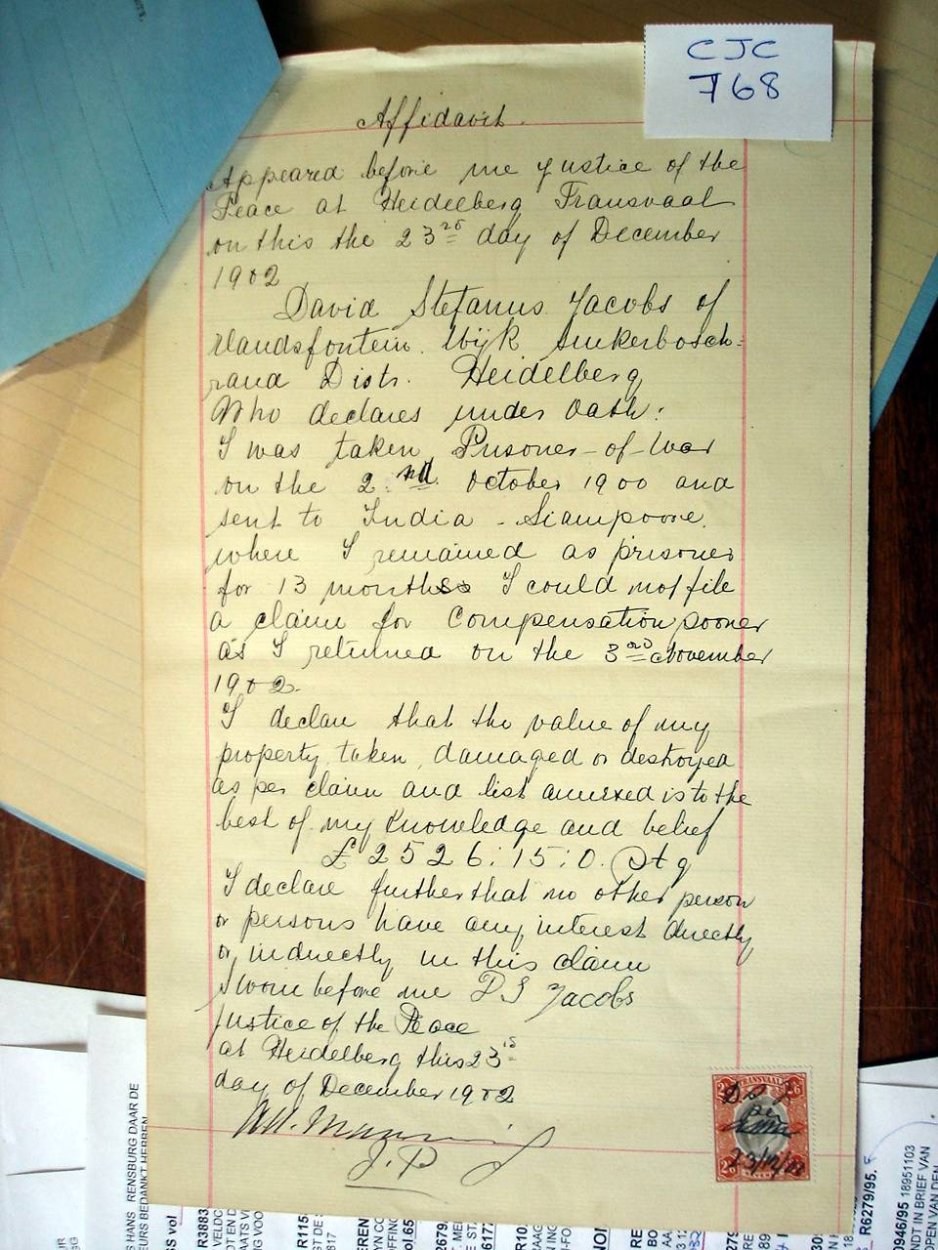 CJC
768
Affidavit.
Appeared before me Justice of the
Peace at Heidelberg Transvaal
on this the 23rd day of December
1902
David Stefanus Jacobs of
Wijk Suikerbosch-
rand Distr. Heidelberg
Who declares under Oath:
I was taken Prisoner-of-War
on the 2nd October 1900 and
sent to India - Siampoore,
where I remained as prisoner
for 13 months I could not file
a claim for Compensation sooner
as I returned on the 3rd November
1902.
I declare that the value of my
property taken, damaged or destroyed
as per claim and list annexed is to the
best of my Knowledge and belief
£ 2526:15:0. Stg
I declare further that no other person
or persons have any interest directly
or indirectly in this claim
Sworn before me D S Jacobs
Justice of the Peace
at Heidelberg this 23
day of December 1902
J.P
TRANSVAAL
2/6 2/6
D S J
23/12/02
HANS RENSBURG DAAR DE
EURS BEDANKT HEBBEN
SS vol
R3883
R115
R6279/95.
2946/95 18951103
NDT IN BRIEF VAN